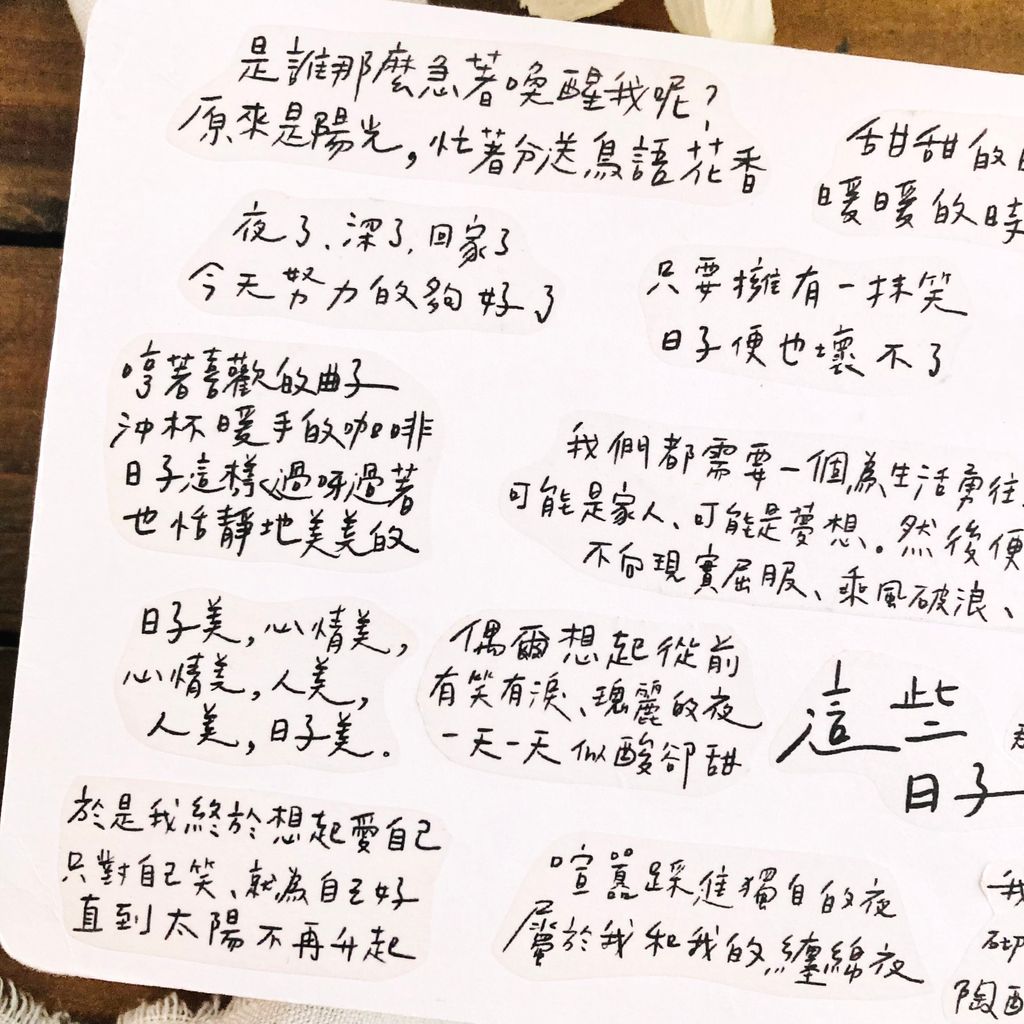 是誰那麼急著喚醒我呢？
原來是陽光，忙著分送鳥語花香
甜甜的
暖暖的時
夜了、深了、回家了
今天努力的夠好了
只要擁有一抹笑
日子便也壞不了
哼著喜歡的曲子
沖杯暖手的咖啡
日子這樣過呀過著
也恬靜地美美的
我們都需要一個為生活勇往
可能是家人、可能是夢想。然後便
不向現實屈服、乘風破浪、
日子美，心情美，
心情美，人美，
人美，日子美。
偶爾想起從前
有笑有淚、瑰麗的夜
一天一天似酸卻甜
這些
日子
於是我終於想起愛自己
只對自己笑、就為自己好
直到太陽不再升起
喧囂踩進獨自的夜
屬於我和我的纏綿夜
我
陶醉